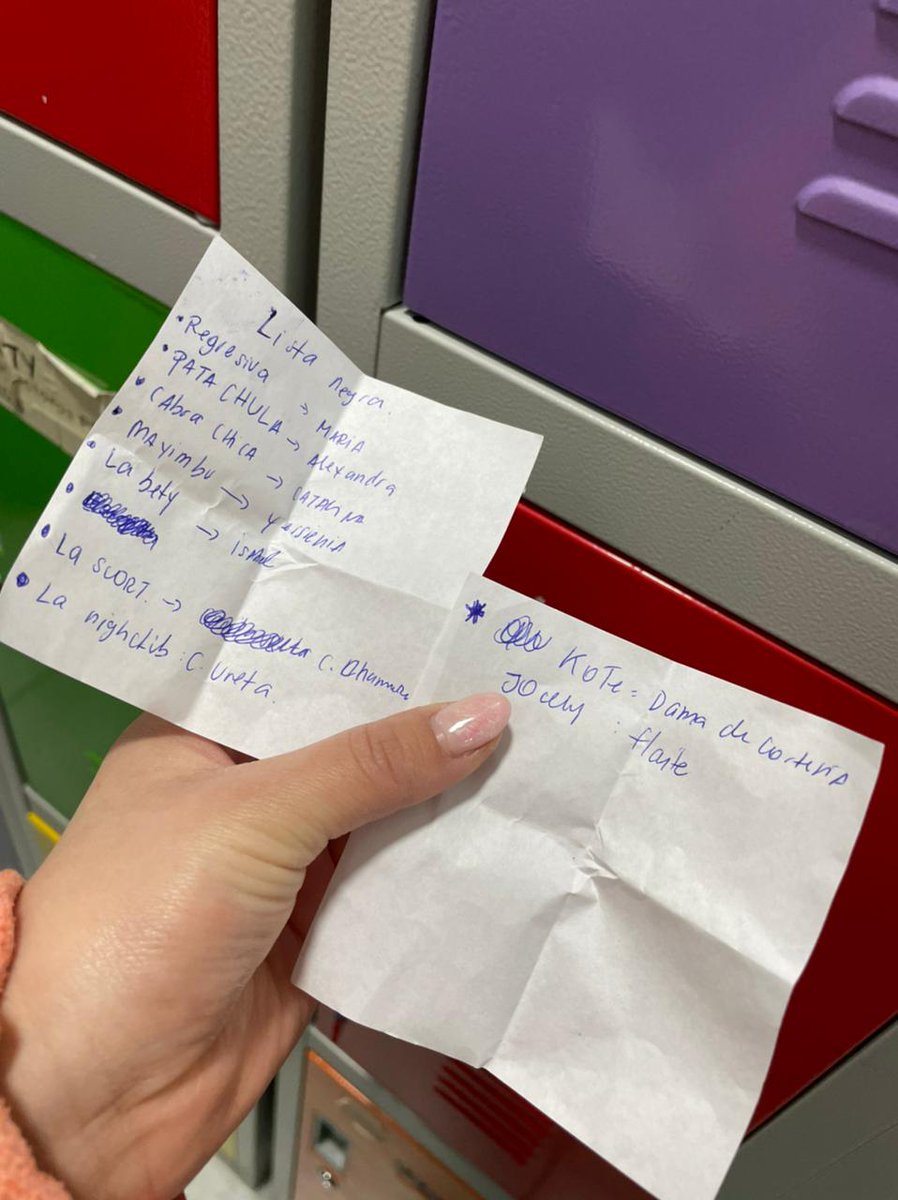 Lista negra.
• Regresiva → MARIA
• PATA CHULA → Alexandra
• CAbra CHICA → CATALINA
• MAYimbu → Yessenia
• La bety → ismael
• La SCORT. → C. Dhamara
• La nighclib : C. Ureta.
* KoTe = Dama de Cortería
JOcely : flaite
TY